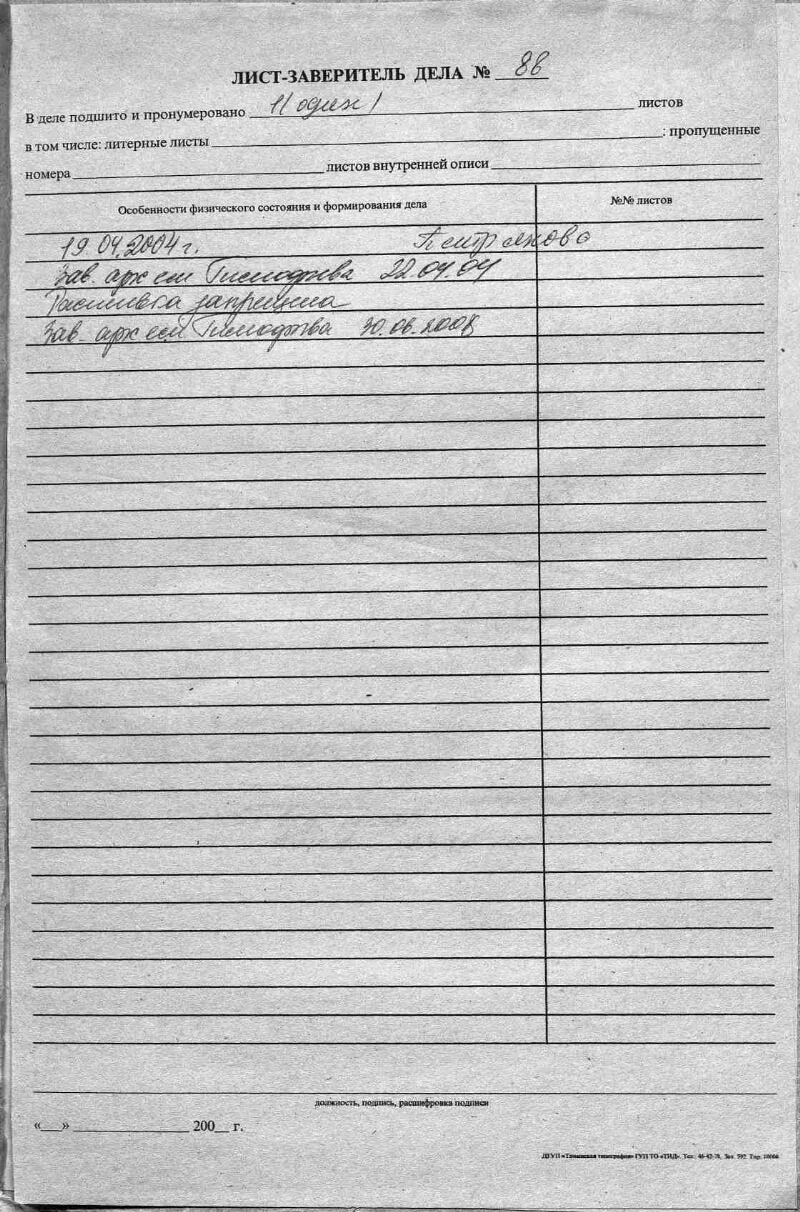 ЛИСТ-ЗАВЕРИТЕЛЬ ДЕЛА № 88
В деле подшито и пронумеровано 1(один) листов
в том числе: литерные листы ; пропущенные
номера листов внутренней описи
Особенности физического состояния и формирования дела №№ листов
19.04.2004 г. Петрякова
Зав. архивом Тимофеева 22.04.04
Расшивка запрещена
Зав. архивом Тимофеева 30.06.2008
должность, подпись, расшифровка подписи
«__» 200__ г.
«Тюменская типография» ГУП ТО «ТИД». Тел.: 46-42-78, Зак. 592 Тир. 10000